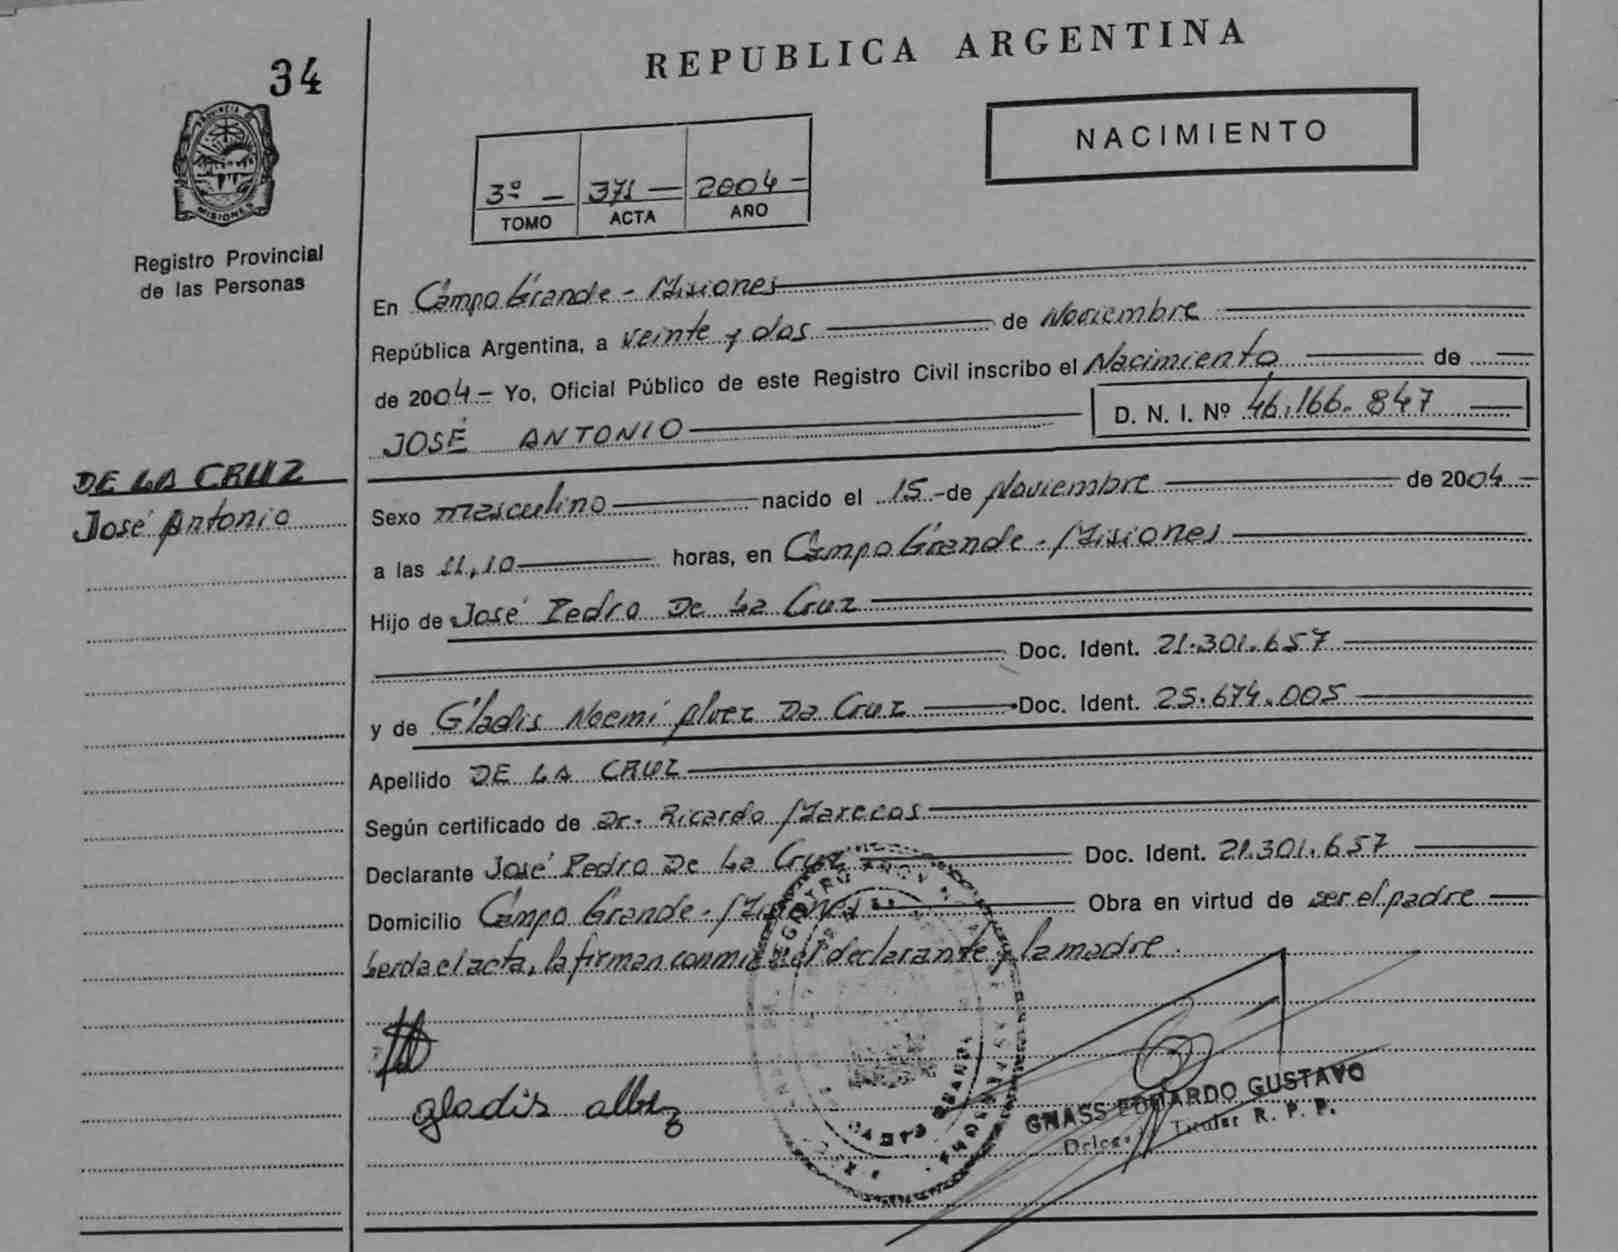 34
REPUBLICA ARGENTINA
NACIMIENTO
3º - 371 - 2004 -
TOMO ACTA AÑO
PROVINCIA DE
MISIONES
Registro Provincial
de las Personas
En Campo Grande - Misiones
República Argentina, a veinte y dos de Noviembre
de 2004 - Yo, Oficial Público de este Registro Civil inscribo el Nacimiento de
JOSÉ ANTONIO D. N. I. Nº 46.166.847
DE LA CRUZ
José Antonio
Sexo masculino nacido el 15 - de Noviembre de 2004 -
a las 11,10 horas, en Campo Grande - Misiones
Hijo de José Pedro De La Cruz
Doc. Ident. 21.301.657
y de Gladis Noemí Alvez Da Cruz Doc. Ident. 25.674.005
Apellido DE LA CRUZ
Según certificado de Dr. Ricardo Marecos
Declarante José Pedro De La Cruz Doc. Ident. 21.301.657
Domicilio Campo Grande - Misiones Obra en virtud de ser el padre
Leída el acta, la firman conmigo el declarante y la madre.
gladis albez
GNASS EDUARDO GUSTAVO
Titular R. P. P.